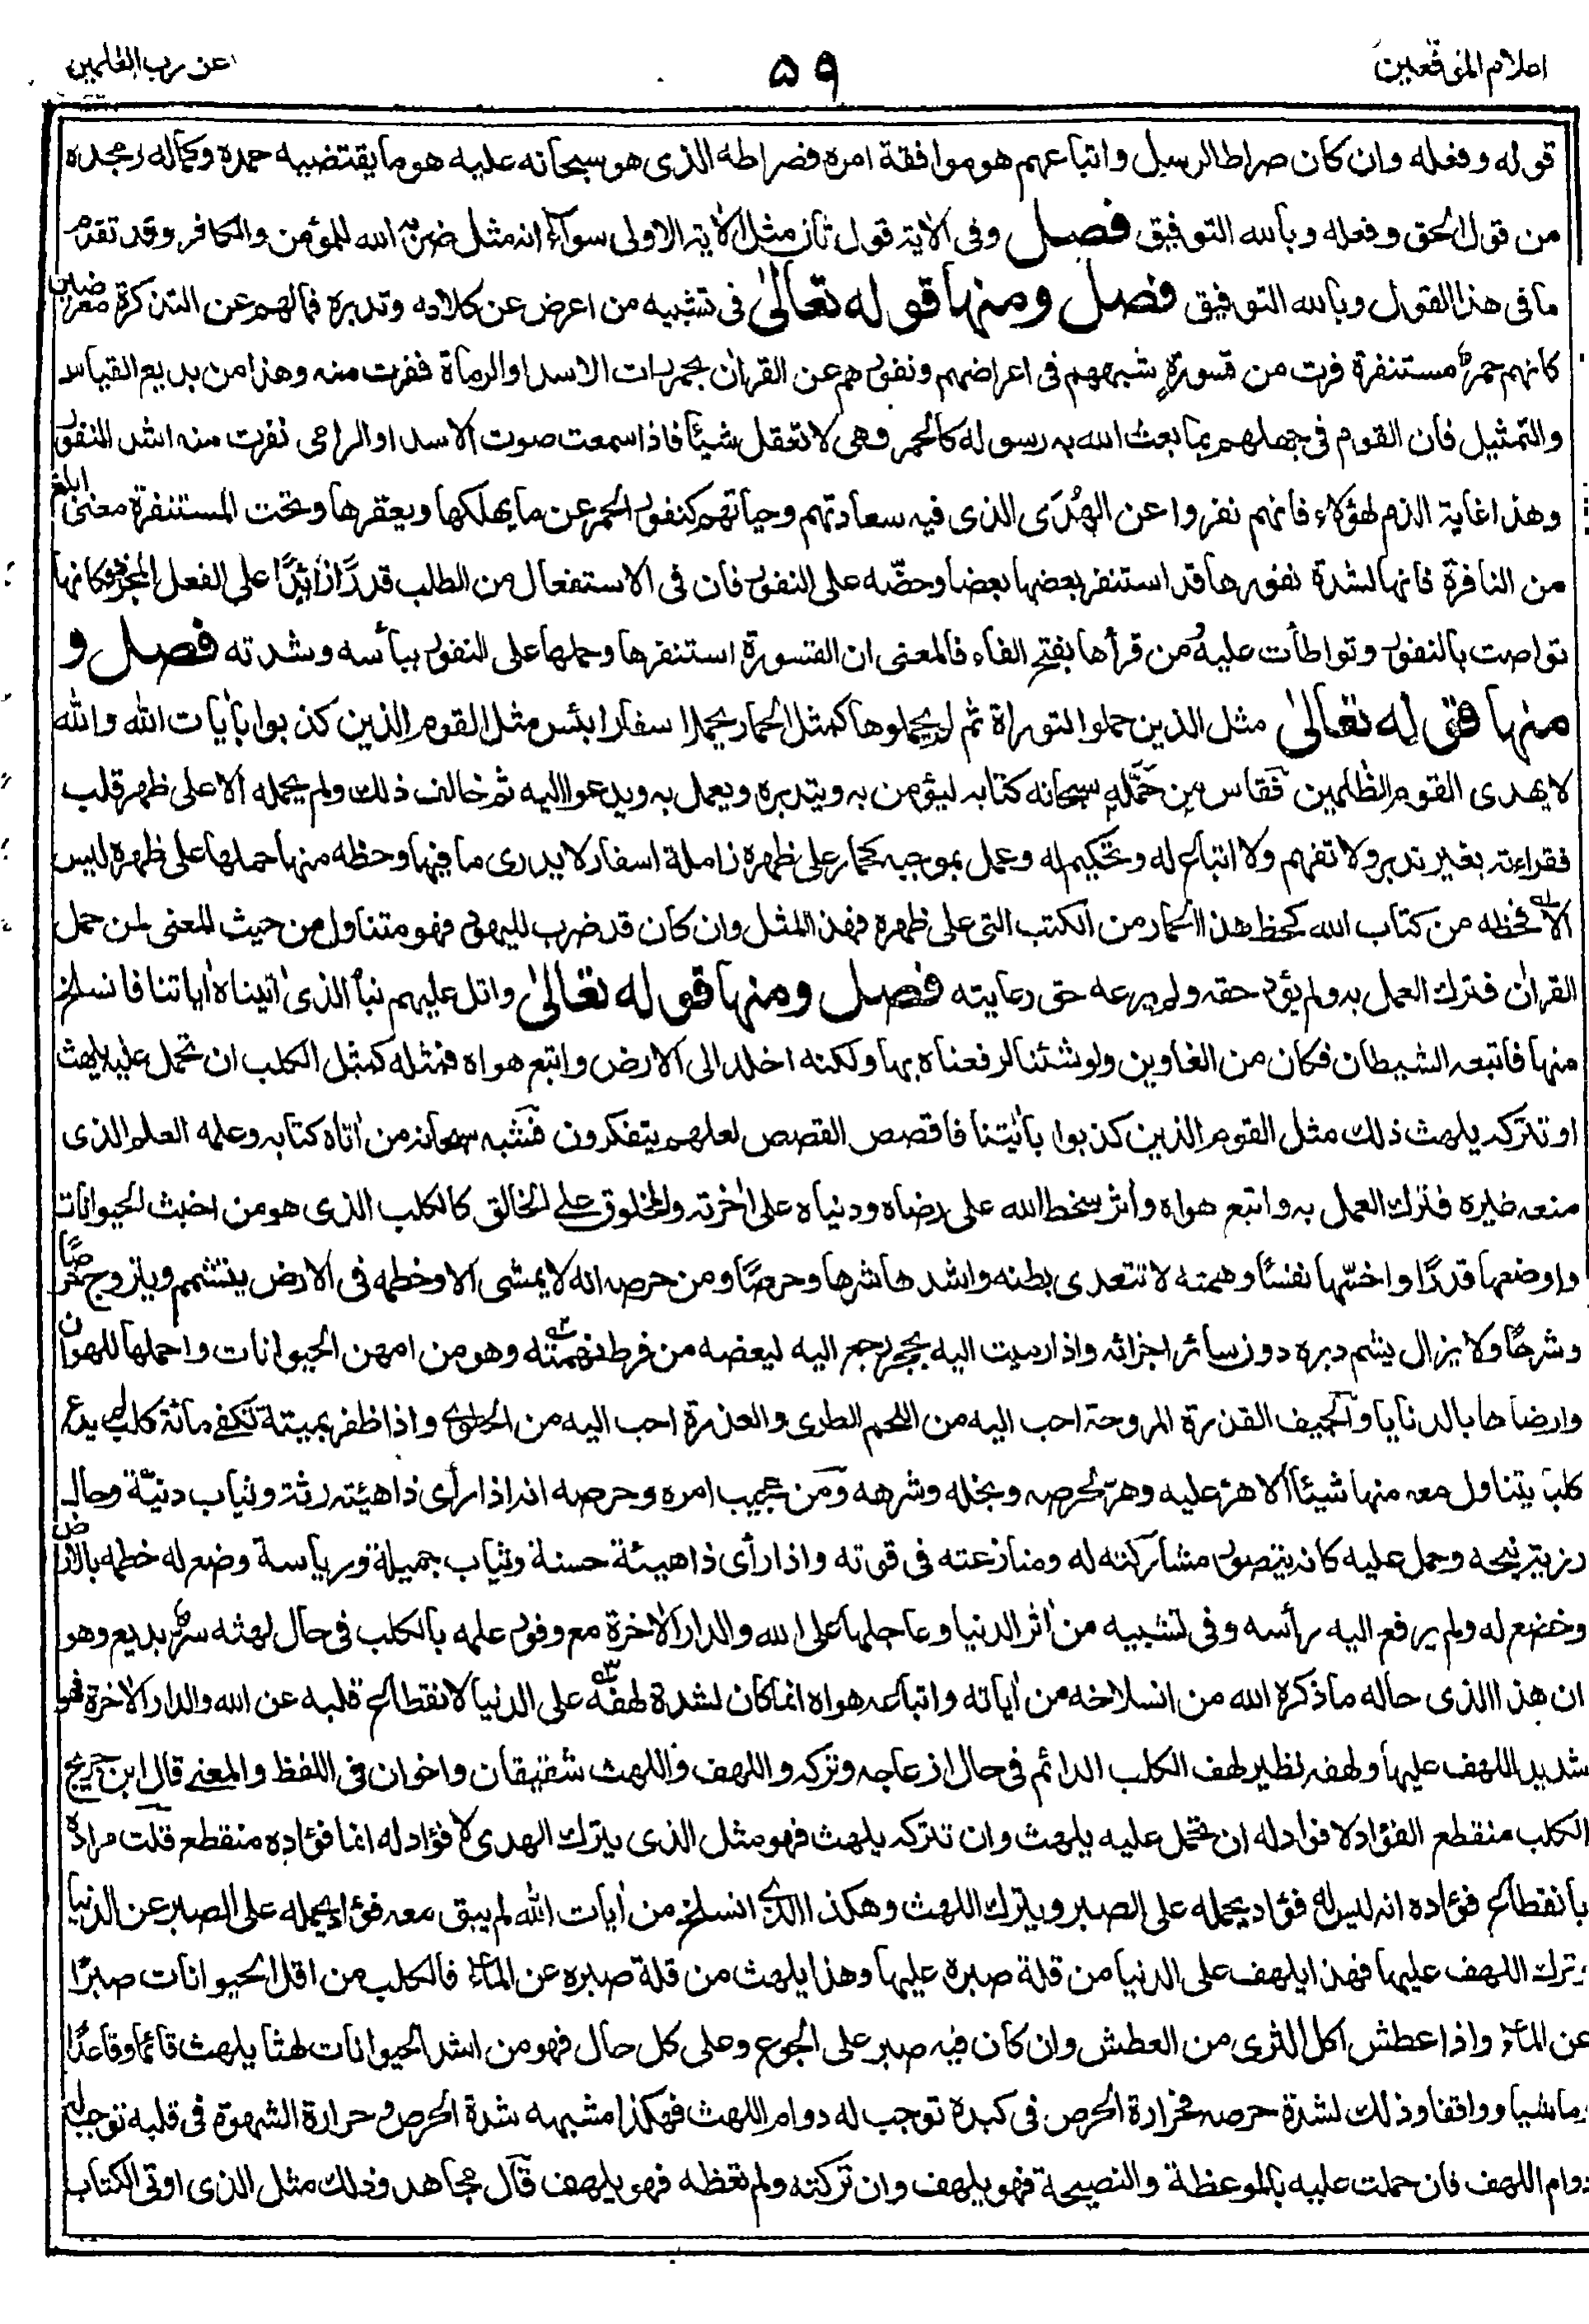 اعلام الموقعين
٥٩
عن رب العلمين
قوله وفعله وان كان صراط الرسل واتباعهم هو موافقة امره فصراطه الذى هو سبحانه عليه هو ما يقتضيه حمده وكماله ومجده
من قول الحق وفعله وبالله التوفيق فصل وفى الاية قول ثان مثل الاية الاولى سوآء انه مثل ضربه الله للمؤمن والكافر وقد تقدم
ما فى هذا القول وبالله التوفيق فصل ومنها قوله تعالىٰ فى تشبيه من اعرض عن كلامه وتدبره فما لهم عن التذكرة معرضين
كانهم حمر مستنفرة فرت من قسورة شبههم فى اعراضهم ونفورهم عن القرآن بحمر رات الاسد او الرماة ففرت منه وهذا من بديع القياس
والتمثيل فان القوم فى جهلهم بما بعث الله به رسوله كالحمر وهى لا تعقل شيئا فاذا سمعت صوت الاسد او الرامى نفرت منه اشد النفور
وهذا غاية الذم لهؤلاء فانهم نفروا عن الهدى الذى فيه سعادتهم وحياتهم كنفور الحمر عن ما يهلكها ويعقرها وتحت المستنفرة معنى ابلغ
من النافرة فانها لشدة نفورها قد استنفر بعضها بعضا وحضه على النفور فان فى الاستفعال من الطلب قدرًا زائدًا على الفعل المجرد فكانها
تواصت بالنفور وتواطأت عليه ومن قرأها بفتح الفاء فالمعنى ان القسورة استنفرها وحملها على النفور ببأسه وشدته فصل و
منها قوله تعالىٰ مثل الذين حملوا التوراة ثم لم يحملوها كمثل الحمار يحمل اسفارا بئس مثل القوم الذين كذبوا بأيات الله والله
لا يهدى القوم الظلمين فقاس من حمّله سبحانه كتابه ليؤمن به ويتدبره ويعمل به ويدعو اليه ثم خالف ذلك ولم يحمله الا على ظهر قلب
فقراءته بغير تدبر ولا تفهم ولا اتباع له وتحكيم له وعمل بموجبه كحمار على ظهره زاملة اسفار لا يدرى ما فيها وحظه منها حملها على ظهره ليس
الا فحظه من كتاب الله كحظ هذا الحمار من الكتب التى على ظهره فهذا المثل وان كان قد ضرب لليهود فهو متناول من حيث المعنى لمن حمل
القرآن فترك العمل به ولم يؤد حقه ولم يرعه حق رعايته فصل ومنها قوله تعالىٰ واتل عليهم نبأ الذى اتيناه اياتنا فانسلخ
منها فاتبعه الشيطان فكان من الغاوين ولو شئنا لرفعناه بها ولكنه اخلد الى الارض واتبع هواه فمثله كمثل الكلب ان تحمل عليه يلهث
او تتركه يلهث ذلك مثل القوم الذين كذبوا بأيٰتنا فاقصص القصص لعلهم يتفكرون فشبه سبحانه من اتاه كتابه وعلمه العلم الذى
منعه غيره فترك العمل به واتبع هواه وأثر سخط الله على رضاه ودنياه على اخرته والمخلوق على الخالق كالكلب الذى هو من اخبث الحيوانات
واوضعها قدرًا واخسّها نفسًا وهمته لا تتعدى بطنه واشدها شرها وحرصًا ومن حرصه انه لا يمشى الا وخطمه فى الارض يتشمم ويتروح حرصًا
وشرهًا ولا يزال يشم دبره دون سائر اجزائه واذا رميت اليه بحجر رجع اليه ليعضه من فرط نهمته وهو من امهن الحيوانات واحملها للهوان
وارضاها بالدنايا والجيف القذرة المروحة احب اليه من اللحم الطرى والعذرة احب اليه من الحلوى واذا ظفر بميتة تكفى مائة كلب لم يدع
كلبا يتناول معه منها شيئا الا هر عليه وهرّ لحرصه وبخله وشرهه ومن عجيب امره وحرصه انه اذا رأى ذا هيئته رثة وثياب دنيّة وحال
رزية نبحه وحمل عليه كانه يتصور مشاركته له ومنازعته فى قوته واذا رأى ذا هيئة حسنة وثياب جميلة ورياسة وضع له خطمه بالارض
وخضع له ولم يرفع اليه رأسه وفى تشبيه من اٰثر الدنيا وعاجلها على الله والدار الاخرة مع وفور علمه بالكلب فى حال لهثه سرّ بديع وهو
ان هذا الذى حاله ما ذكره الله من انسلاخه من أياته واتباعه هواه انما كان لشدة لهفه على الدنيا لانقطاع قلبه عن الله والدار الاخرة فهو
شديد اللهف عليها ولهفه نظير لهف الكلب الدائم فى حال ازعاجه وتركه واللهف واللهث شقيقان واخوان فى اللفظ والمعنى قال ابن جريج
الكلب منقطع الفؤاد لا فؤاد له ان تحمل عليه يلهث وان تتركه يلهث فهو مثل الذى يترك الهدى لا فؤاد له انما فؤاده منقطع قلت مراده
بانقطاع فؤاده انه ليس له فؤاد يحمله على الصبر ويترك اللهث وهكذا الذى انسلخ من أيات الله لم يبق معه فؤاد يحمله على الصبر عن الدنيا
وترك اللهف عليها فهذا يلهف على الدنيا من قلة صبره عليها وهذا يلهث من قلة صبره عن الماء فالكلب من اقل الحيوانات صبرًا
عن الماء واذا عطش اكل الثرى من العطش وان كان فيه صبر على الجوع وعلى كل حال فهو من اشد الحيوانات لهثا يلهث قائما وقاعدًا
وماشيا وواقفا وذلك لشدة حرصه فحرارة الحرص فى كبده توجب له دوام اللهث فهكذا مشبهه شدة الحرص وحرارة الشهوة فى قلبه توجب له
دوام اللهف فان حملت عليه بالموعظة والنصيحة فهو يلهف وان تركته ولم تعظه فهو يلهف قال مجاهد وذلك مثل الذى اوتى الكتاب